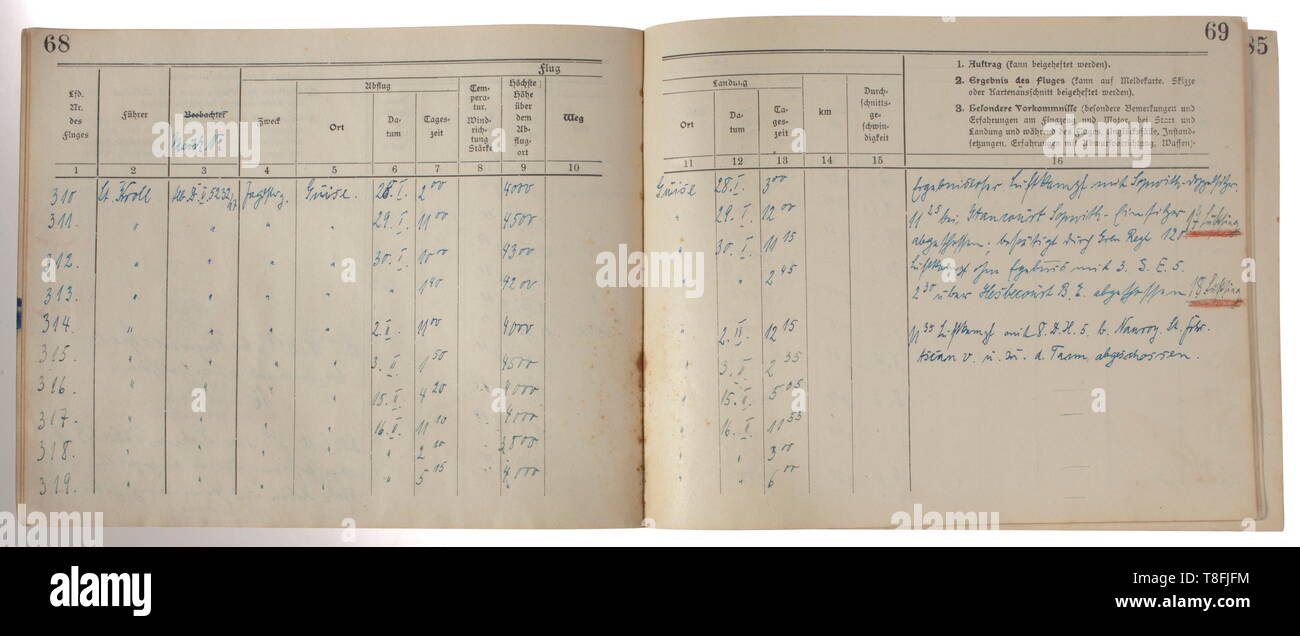 68
Flug
Lfd. Nr. des Fluges
Führer
Beobachter
Zweck
Abflug
Ort
Da-tum
Tages-zeit
Tem-pera-tur. Wind-rich-tung Stärke
Höchste Höhe über dem Ab-flug-ort
Weg
1 2 3 4 5 6 7 8 9 10
310 Lt. Kroll Guise. 28. I. 2 00 4000
311. " " " " 29. I. 11 00 4500
312. " " " " 30. I. 10 00 4300
313. " " " " " 1 40 4200
314. " " " " 2. II. 11 00 4000
315. " " " " 3. II. 1 50 4500
316. " " " " 15. II. 4 20 4000
317. " " " " 16. II. 11 10 4000
318. " " " " " 2 10 3800
319. " " " " " 5 15 4000
69
Landung
Ort
Da-tum
Ta-ges-zeit
km
Durch-schnitts-ge-schwin-digkeit
1. Auftrag (kann beigeheftet werden).
2. Ergebnis des Fluges (kann auf Meldekarte. Skizze
oder Kartenausschnitt beigeheftet werden).
3. Besondere Vorkommnisse (besondere Bemerkungen und
Erfahrungen am Flugzeug und Motor, bei Start und
Landung und während des Fluges, Unglücksfälle, Instand-
setzungen, Erfahrungen mit Abwurfvorrichtung, Waffen):
11 12 13 14 15 16
Guise 28. I. 3 00
" 29. I. 12 00
" 30. I. 11 15
" " 2 45
" 2. II. 12 15
" 3. II. 2 35
" 15. II. 5 05
" 16. II. 11 55
" " 3 00
" " 6 00
Ergebnisloser Luftkampf mit Sopwith-Doppelsitzer.
11 25 bei Sopwith-Einsitzer
abgeschossen, bestätigt durch Gren Regt 120
Luftkampf ohne Ergebnis mit 3. S. E. 5.
2 30 über Hesbecourt B. E. abgeschossen
11 35 Luftkampf mit 8. D.H. 5. b. Nauroy.
v. u. zu. d. abgeschossen.
85
alamy
alamy
alamy
Image ID: T8FJFM
www.alamy.com